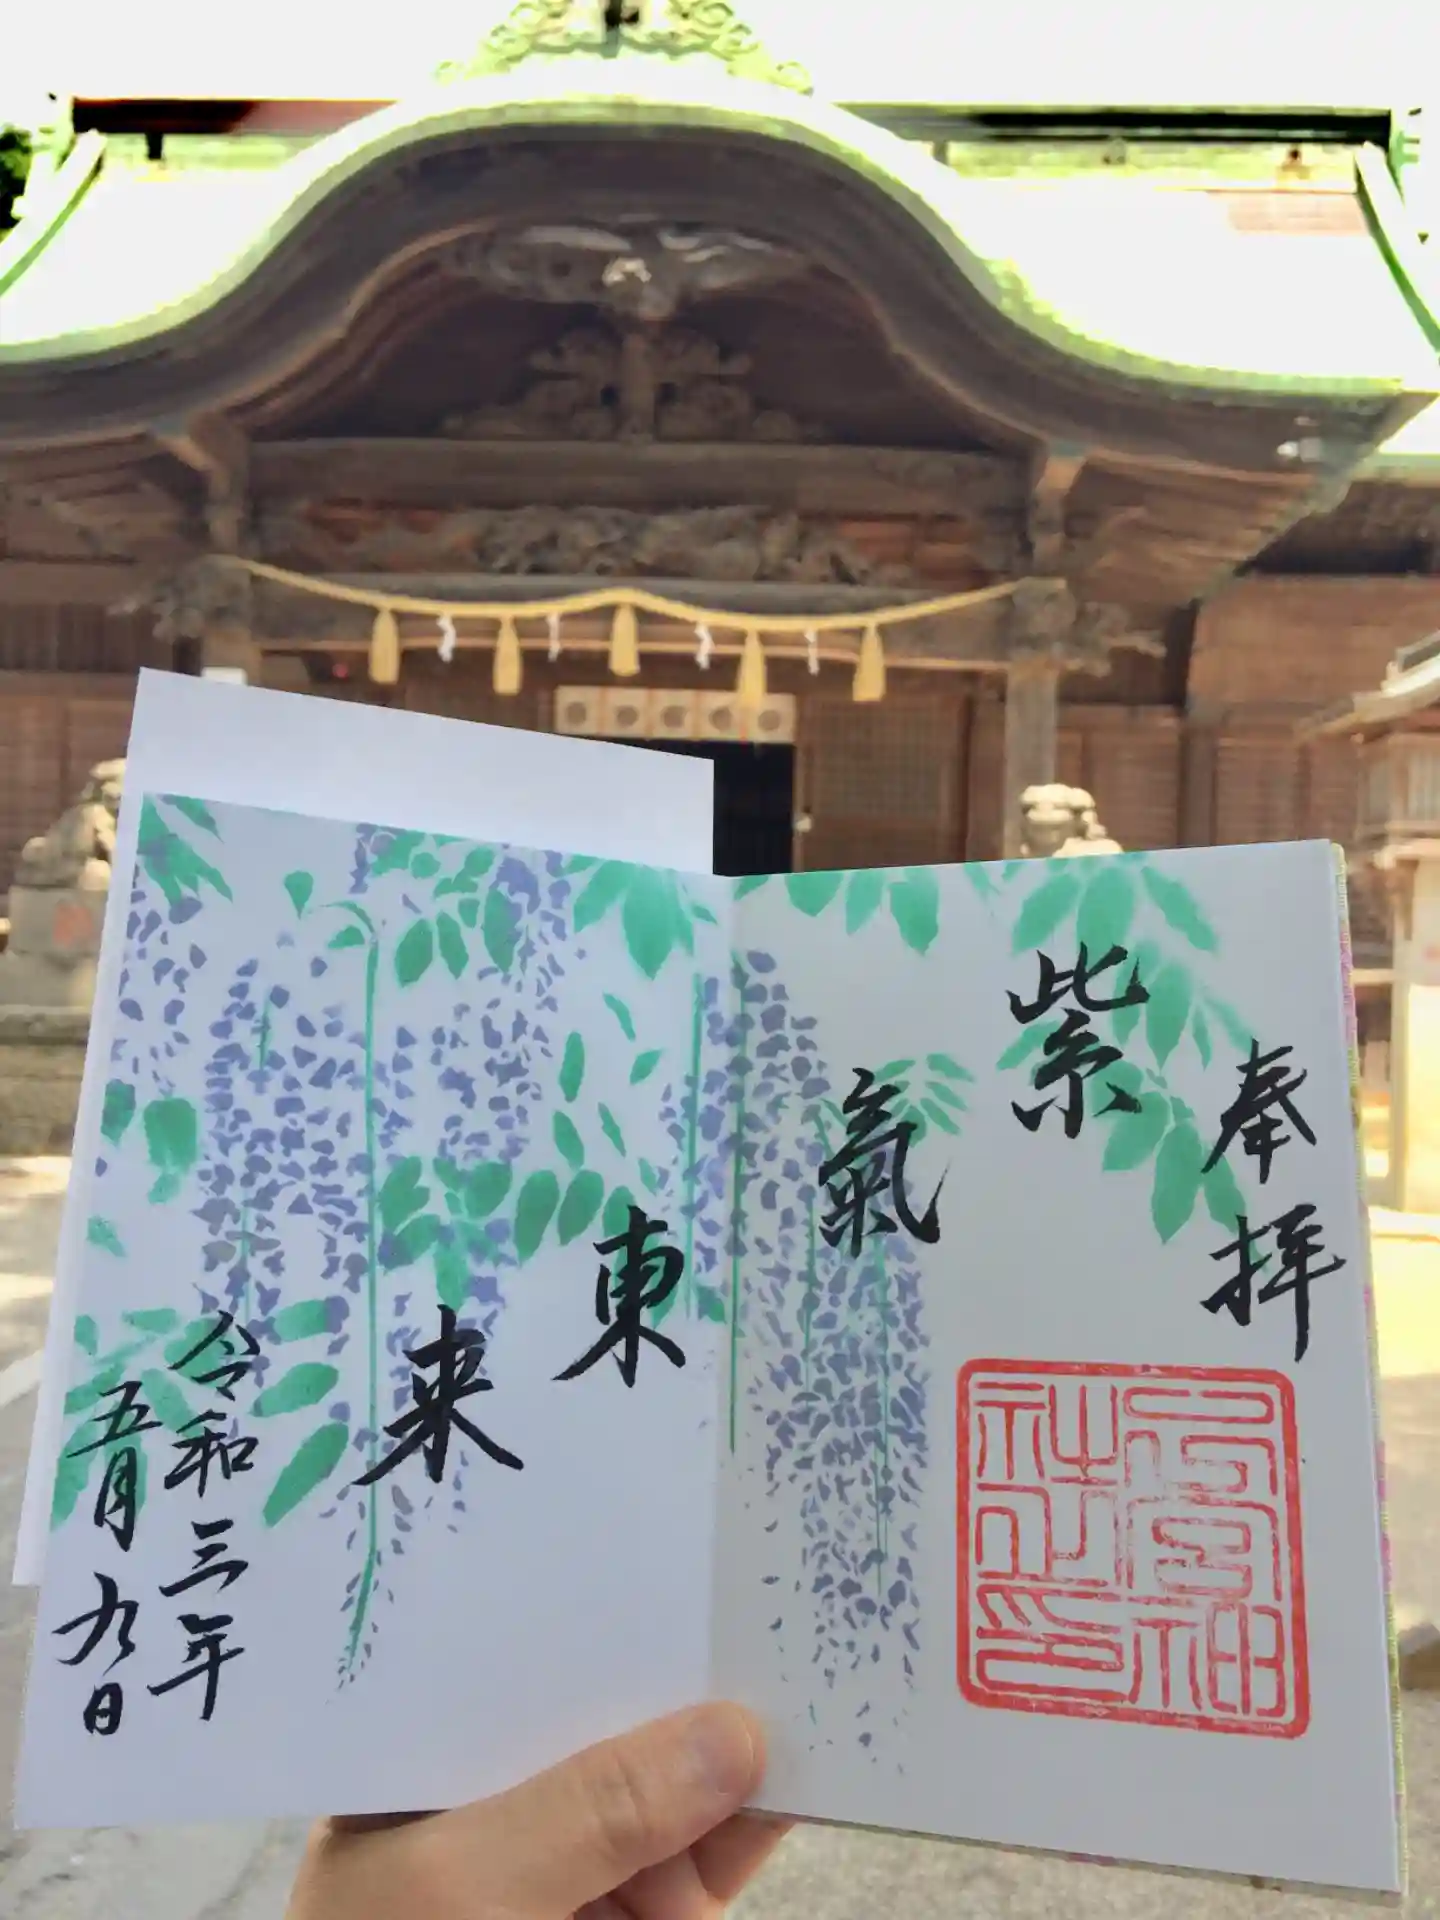 奉拝
紫
氣
東
来
令和三年
五月九日